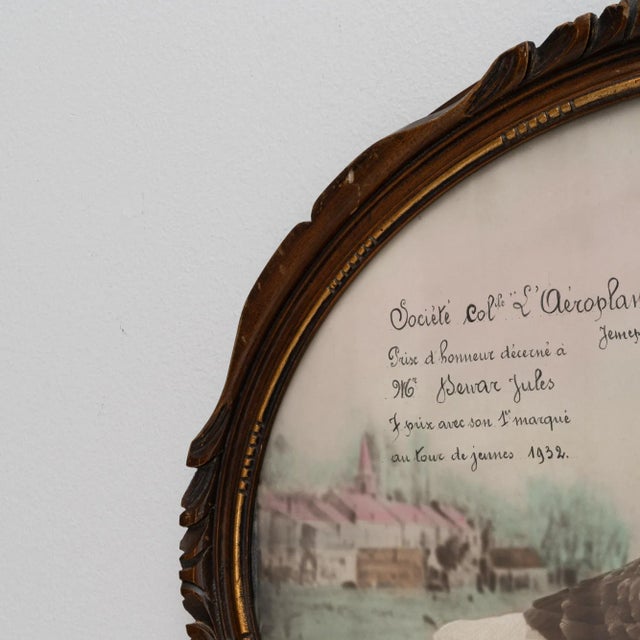 Société colle "L'Aéroplan
Jemep
Prix d'honneur décerné à
Mr Dewar Jules
prix avec son 1r marqué
au tour de jeunes 1932.